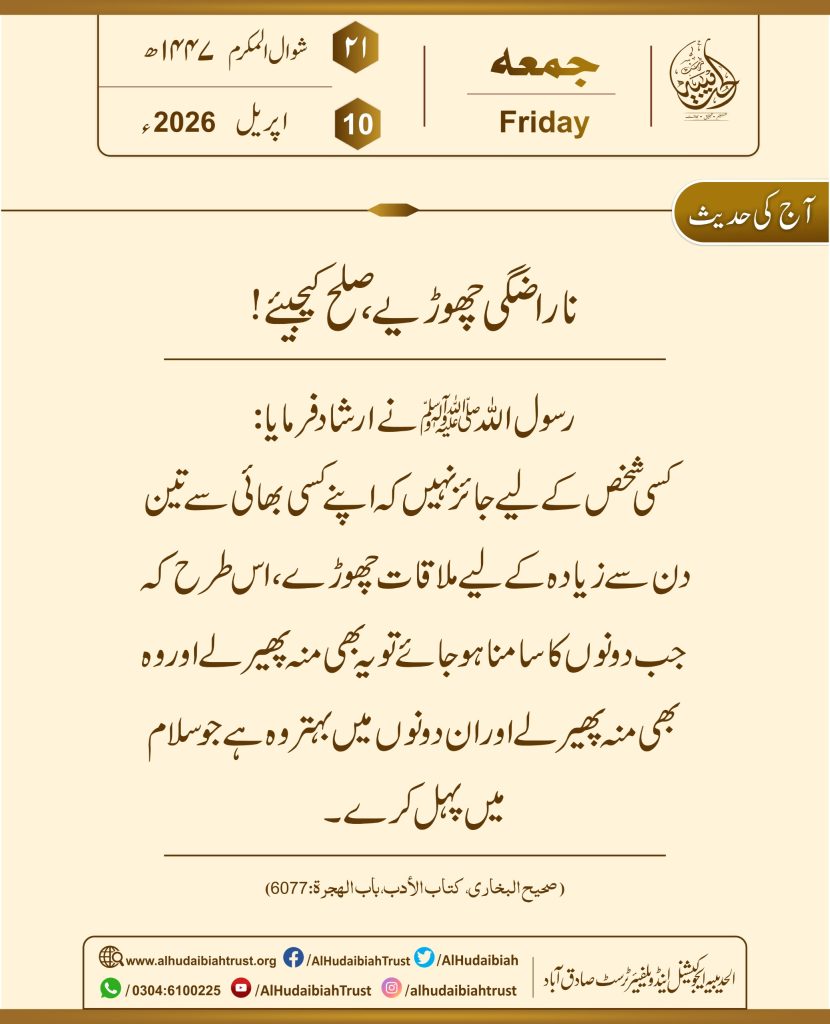 جمعه
Friday
۲۱ شوال المکرم ۱۴۴۷ھ
10 اپریل 2026ء
آج کی حدیث
ناراضگی چھوڑیے، صلح کیجیئے!
رسول اللہ ﷺ نے ارشاد فرمایا:
کسی شخص کے لیے جائز نہیں کہ اپنے کسی بھائی سے تین
دن سے زیادہ کے لیے ملاقات چھوڑے، اس طرح کہ
جب دونوں کا سامنا ہو جائے تو یہ بھی منہ پھیر لے اور وہ
بھی منہ پھیر لے اور ان دونوں میں بہتر وہ ہے جو سلام
میں پہل کرے۔
(صحیح البخاری، کتاب الأدب، باب الهجرة: 6077)
www.alhudaibiahtrust.org /AlHudaibiahTrust /AlHudaibiah
/ 0304:6100225 /AlHudaibiahTrust /alhudaibiahtrust
الحدیبیہ ایجوکیشنل اینڈ ویلفیئر ٹرسٹ صادق آباد